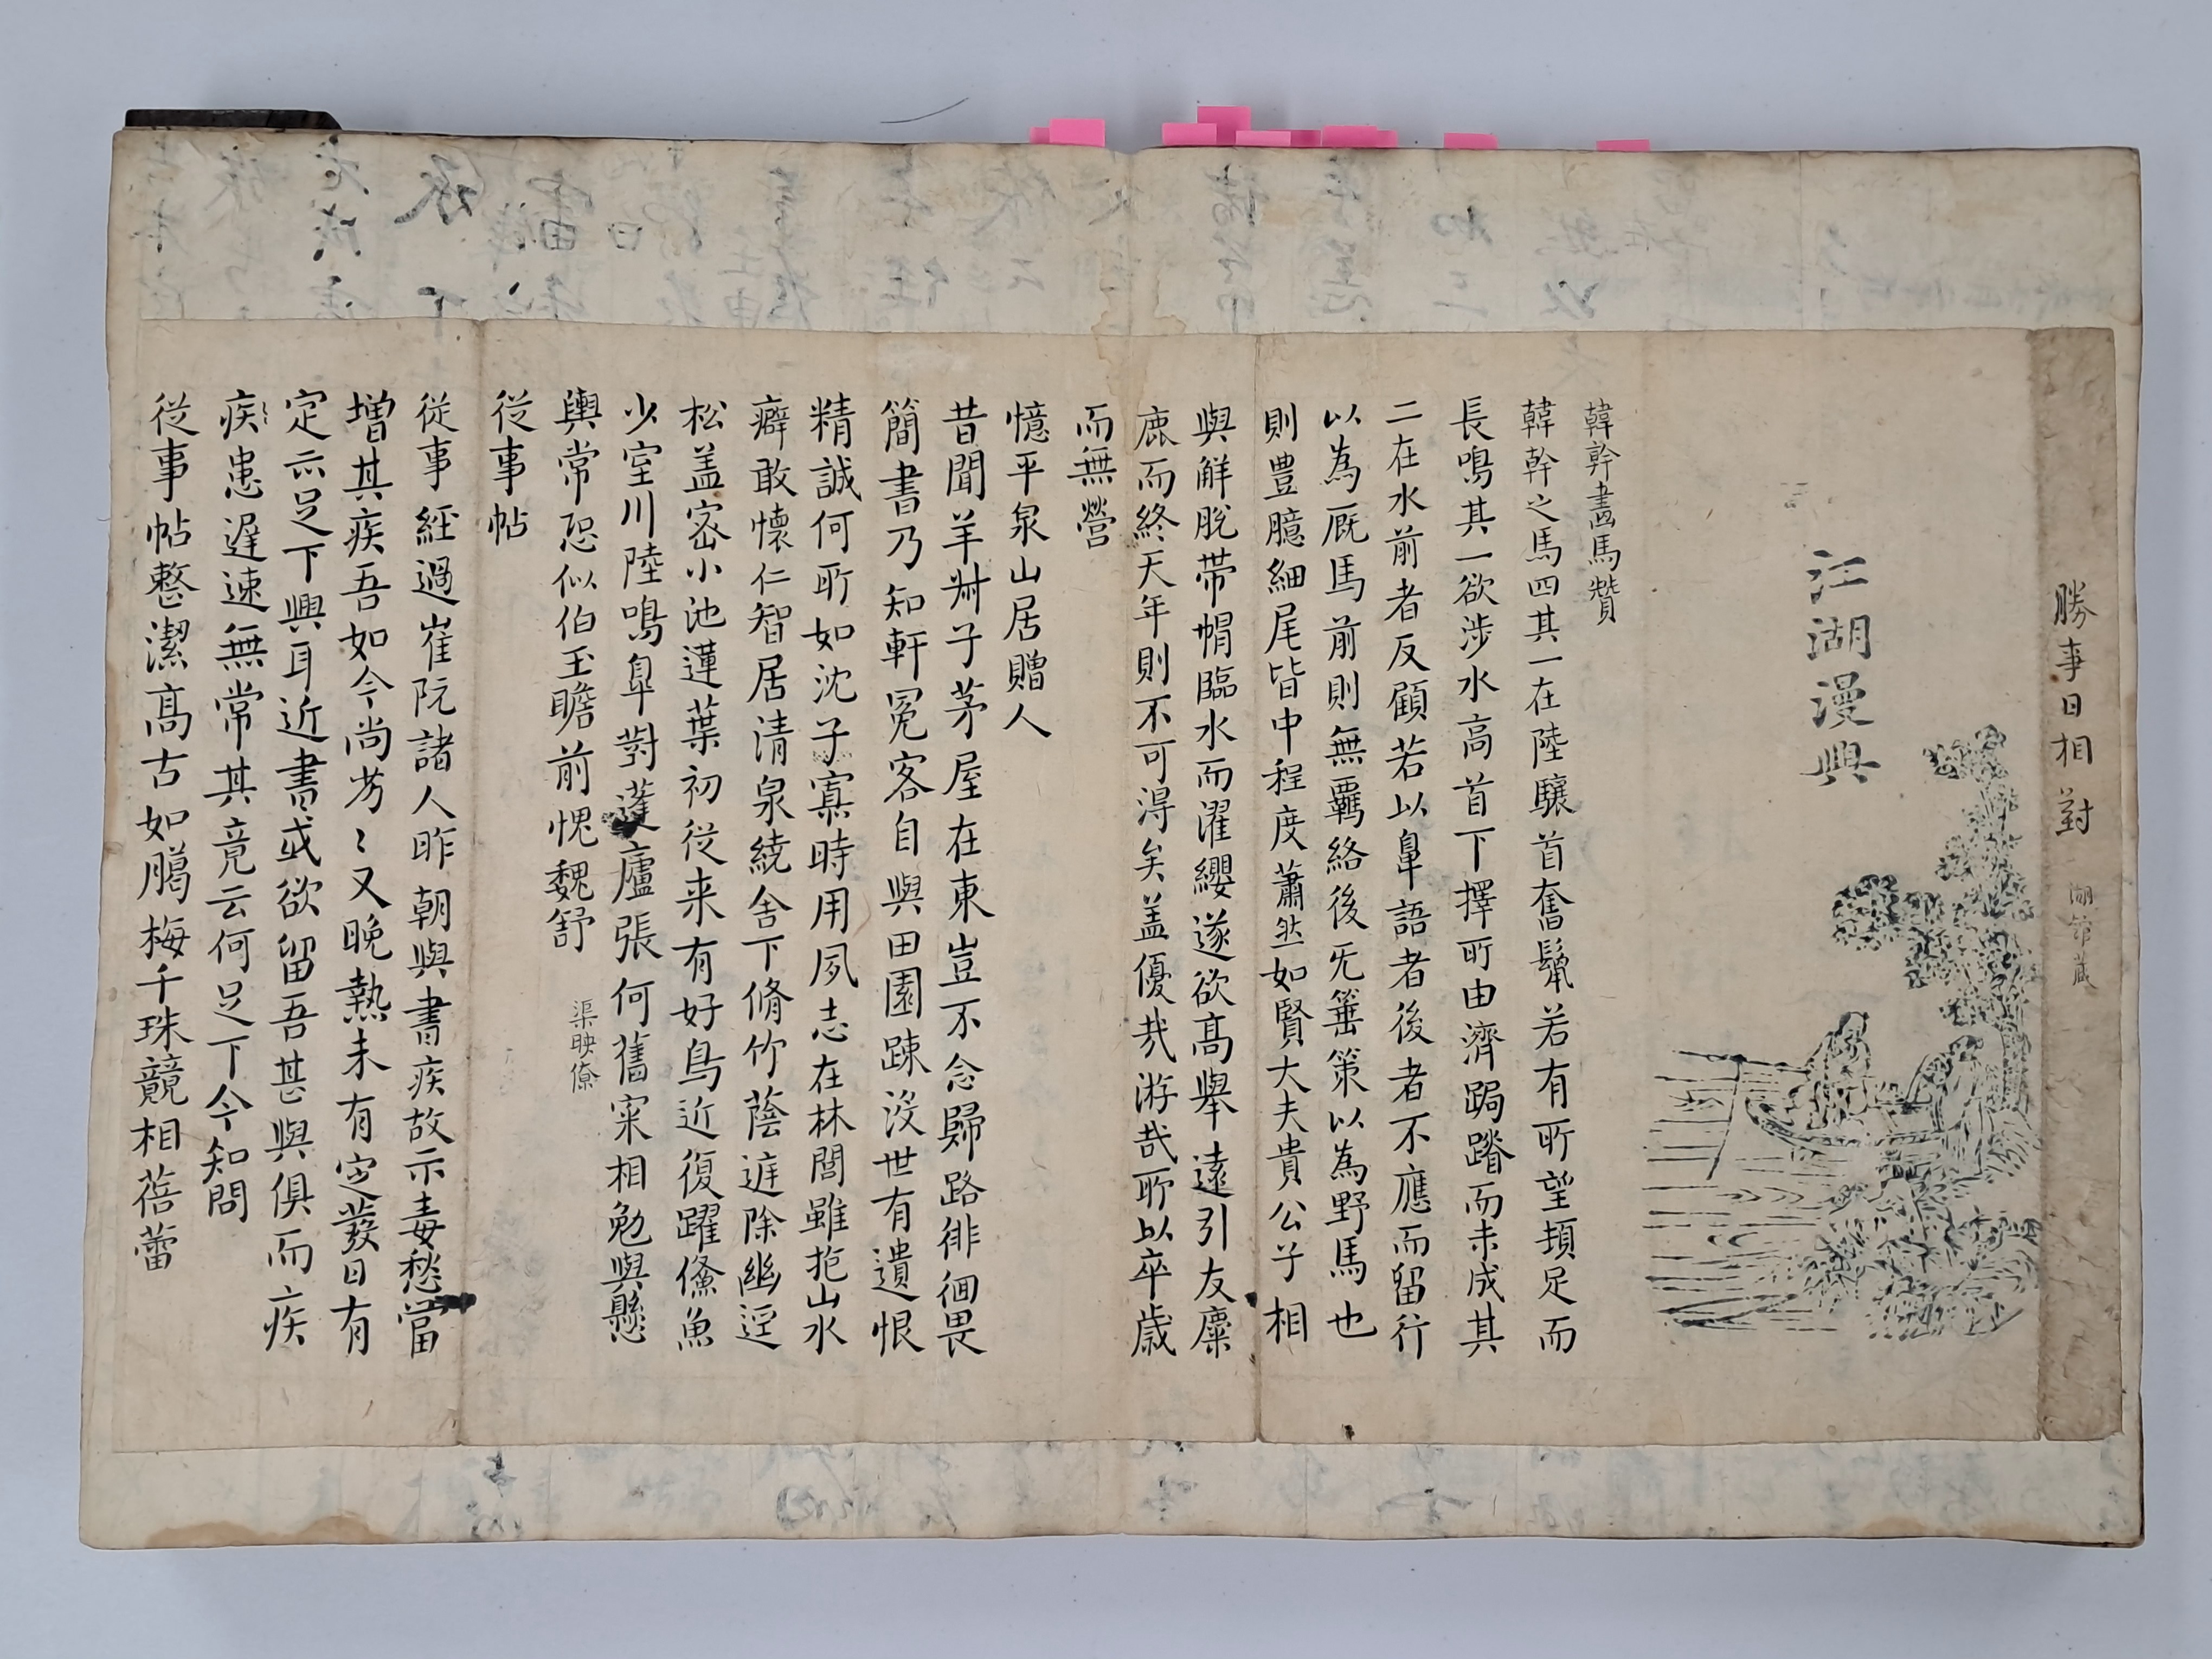 勝事日相對 湖舘蔵
江湖漫興
韓幹畵馬贊
韓幹之馬四其一在陸驤首奮鬣若有所望頓足而
長鳴其一欲涉水高首下擇所由濟跼蹐而未成其
二在水前者反顧若以鼻語者後者不應而留行
以為厩馬前則無羈絡後无箠策以為野馬也
則豊臆細尾皆中程度蕭然如賢大夫貴公子相
與觧脫帶帽臨水而濯纓遂欲高舉遠引友麋
鹿而終天年則不可淂矣盖優哉游哉所以卒歲
而無營
憶平泉山居贈人
昔聞羊叔子茅屋在東豈不念歸路徘徊畏
簡書乃知軒冕客自與田園踈沒世有遺恨
精誠何所如沈子寡時用夙志在林閭雖抱山水
癖敢懷仁智居清泉繞舍下脩竹蔭庭除幽逕
松盖密小池蓮葉初從来有好鳥近復躍鯈魚
少室川陸鳴皐對蓬廬張何舊寀相勉與懸
輿常恐似伯玉瞻前愧魏舒
渠映僚
從事帖
從事經過崔阮諸人昨朝與書疾故示毒愁當
增其疾吾如今尚劳〻又晚熱未有定發日有
定亦足下興耳近書或欲留吾甚與俱而疾
疾患遲速無常其竟云何足下今知問
從事帖整潔高古如臈梅千珠競相蓓蕾